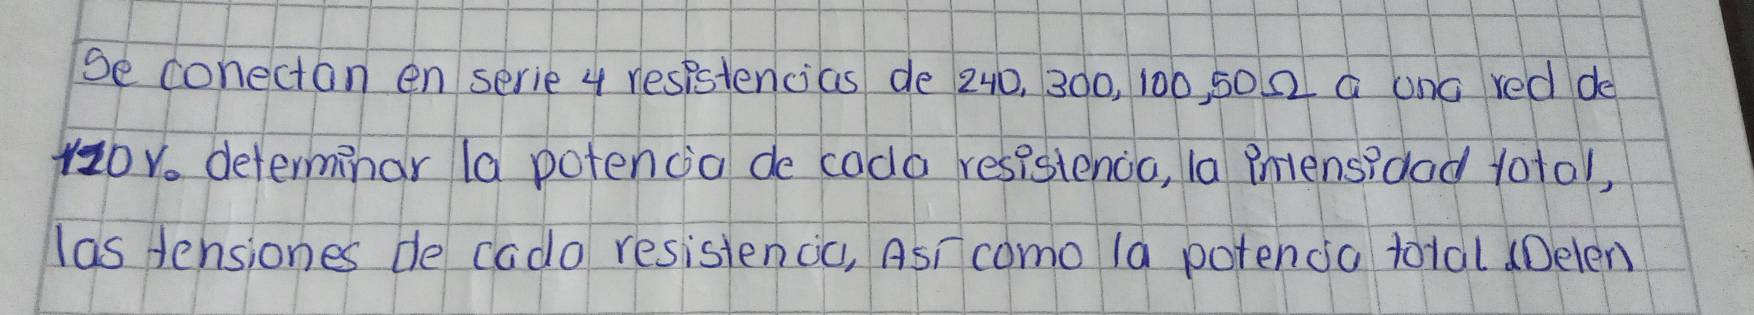 Se conectan en serie 4 resistencias de 240, 300, 100, 50Ω a una red de
120V. determinar la potencia de cada resistencia, la intensidad total,
las tensiones de cada resistencia, Así como la potencia total